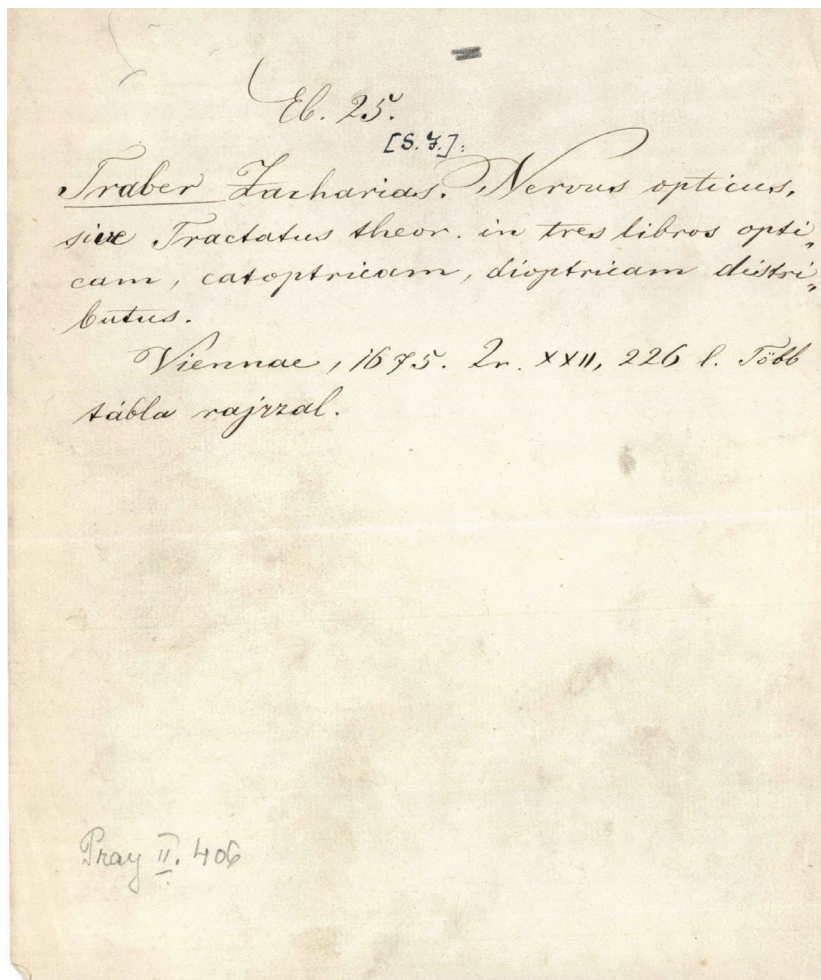 Eb. 25.
[S. J.]:
Traber Zacharias. Nervus opticus,
sive Tractatus theor. in tres libros opti„
cam, catoptricam, dioptricam distri„
butus.
Viennae, 1675. 2r. XXII, 226 l. Több
tábla rajzzal.
Pray II. 406